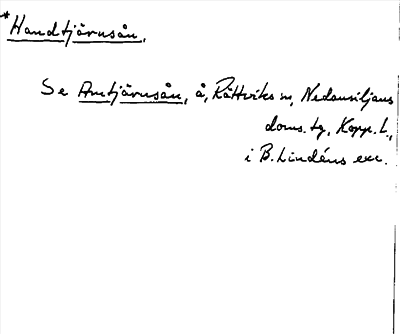 *Handtjärnsån.
Se Amtjärnsån, å, Rättviks sn, Nedansiljans
doms. tg, Kopp. l.,
i B. Lindéns exc.